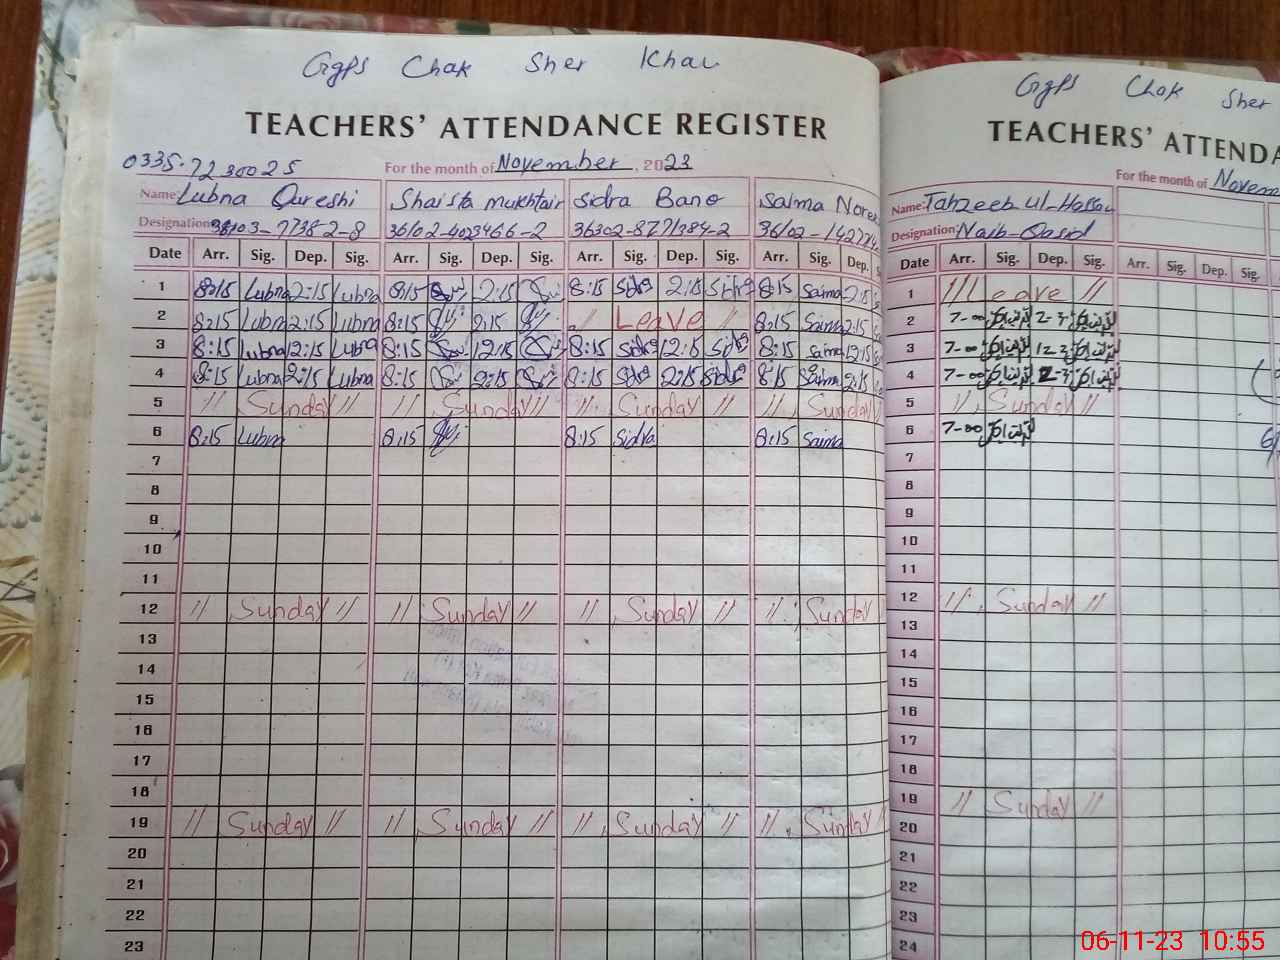 GGPS Chak Sher Khan
TEACHERS' ATTENDANCE REGISTER
0335-7230025
For the month of November, 2023
Name: Lubna Qureshi Shaista Mukhtair Sidra Bano Saima Nore
Designation 36302-8771384-2
Date Arr. Sig. Dep. Sig. Arr. Sig. Dep. Sig. Arr. Sig. Dep. Sig. Arr. Sig. Dep.
1 8:15 Lubna 2:15 Lubna 8:15 2:15 8:15 Sidra 2:15 Sidra 8:15 Saima 2:15
2 8:15 Lubna 2:15 Lubna 8:15 2:15 // Leave // 8:15 Saima 2:15
3 8:15 Lubna 12:15 Lubna 8:15 12:15 8:15 Sidra 12:15 Sidra 8:15 Saima 12:15
4 8:15 Lubna 2:15 Lubna 8:15 2:15 8:15 Sidra 2:15 Sidra 8:15 Saima 2:15
5 // Sunday // // Sunday // // Sunday // // Sunday
6 8:15 Lubna 8:15 8:15 Sidra 8:15 Saima
7
8
9
10
11
12 // Sunday // // Sunday // // Sunday // // Sunday
13
14
15
16
17
18
19 // Sunday // // Sunday // // Sunday // // Sunday
20
21
22
23
GGPS Chak Sher
TEACHERS' ATTENDA
For the month of Novem
Name: Tahzeeb ul-Hassan
Designation: Naib-Qasid
Date Arr. Sig. Dep. Sig. Arr. Sig. Dep. Sig.
1 // Leave //
2 7-00
3 7-00
4 7-00
5 // Sunday //
6 7-00
7
8
9
10
11
12 // Sunday //
13
14
15
16
17
18
19 // Sunday //
20
21
22
23
24
06-11-23 10:55